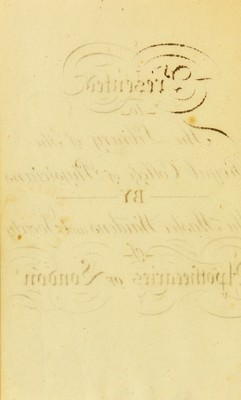 Presented
to
The Library of the
Royal College of Physicians
BY
the Master Wardens and Society
of
Apothecaries of London